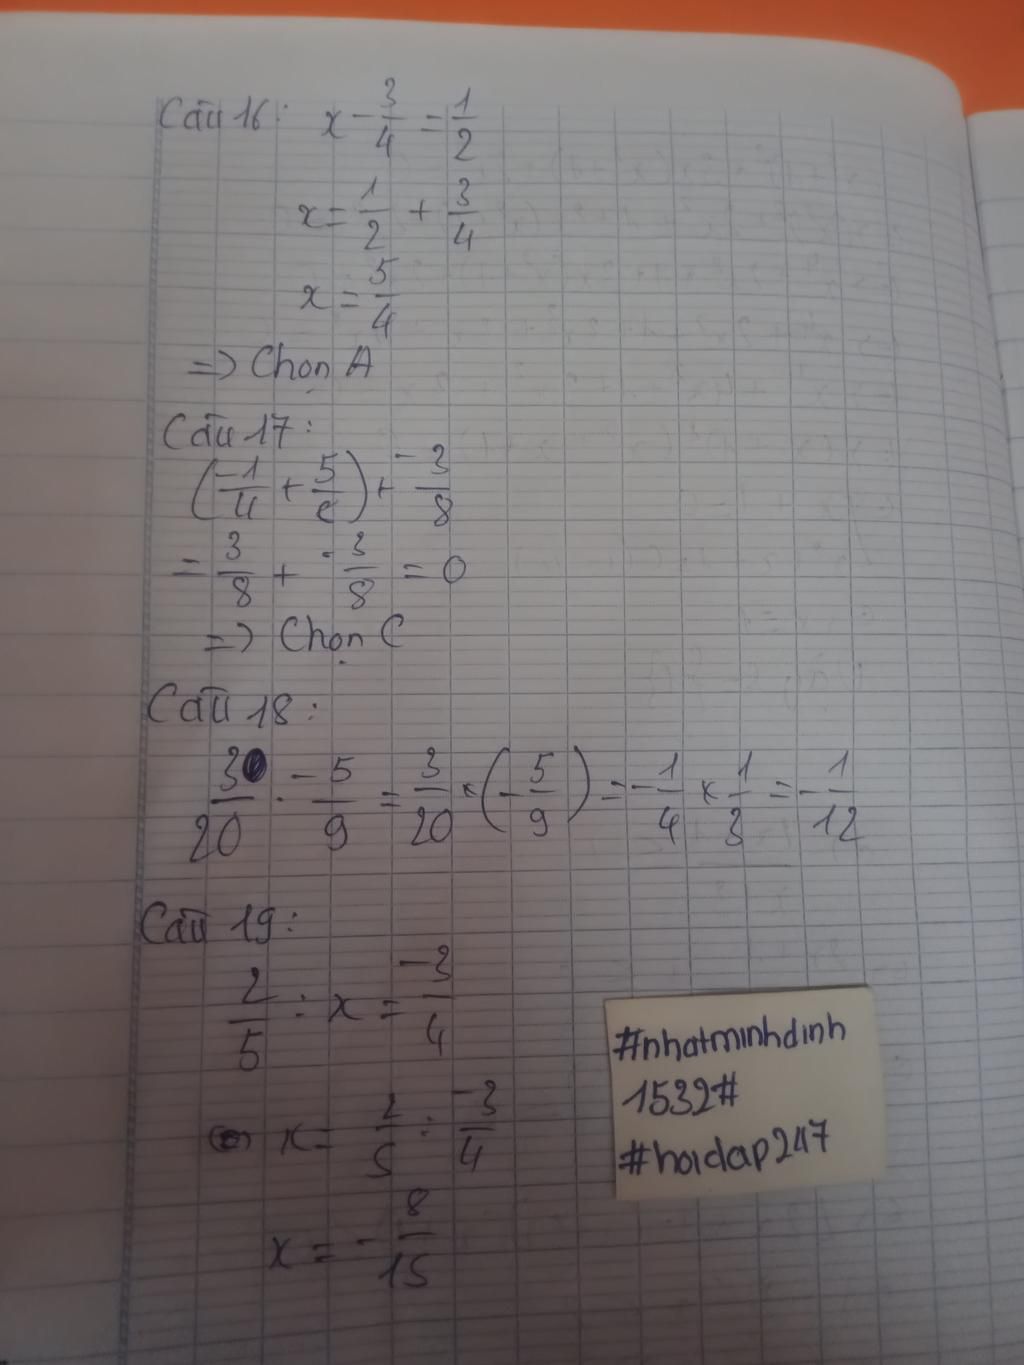 Câu 16: x - 3/4 = 1/2
x = 1/2 + 3/4
x = 5/4
=> Chọn A
Câu 17:
(-1/4 + 5/8) + -3/8
= 3/8 + -3/8 = 0
=> Chọn C
Câu 18:
3/20 . -5/9 = 3/20 × (-5/9) = -1/4 × 1/3 = -1/12
Câu 19:
2/5 : x = -3/4
x = 2/5 : -3/4
x = -8/15
#nhatminhdinh
1532#
#hoidap247